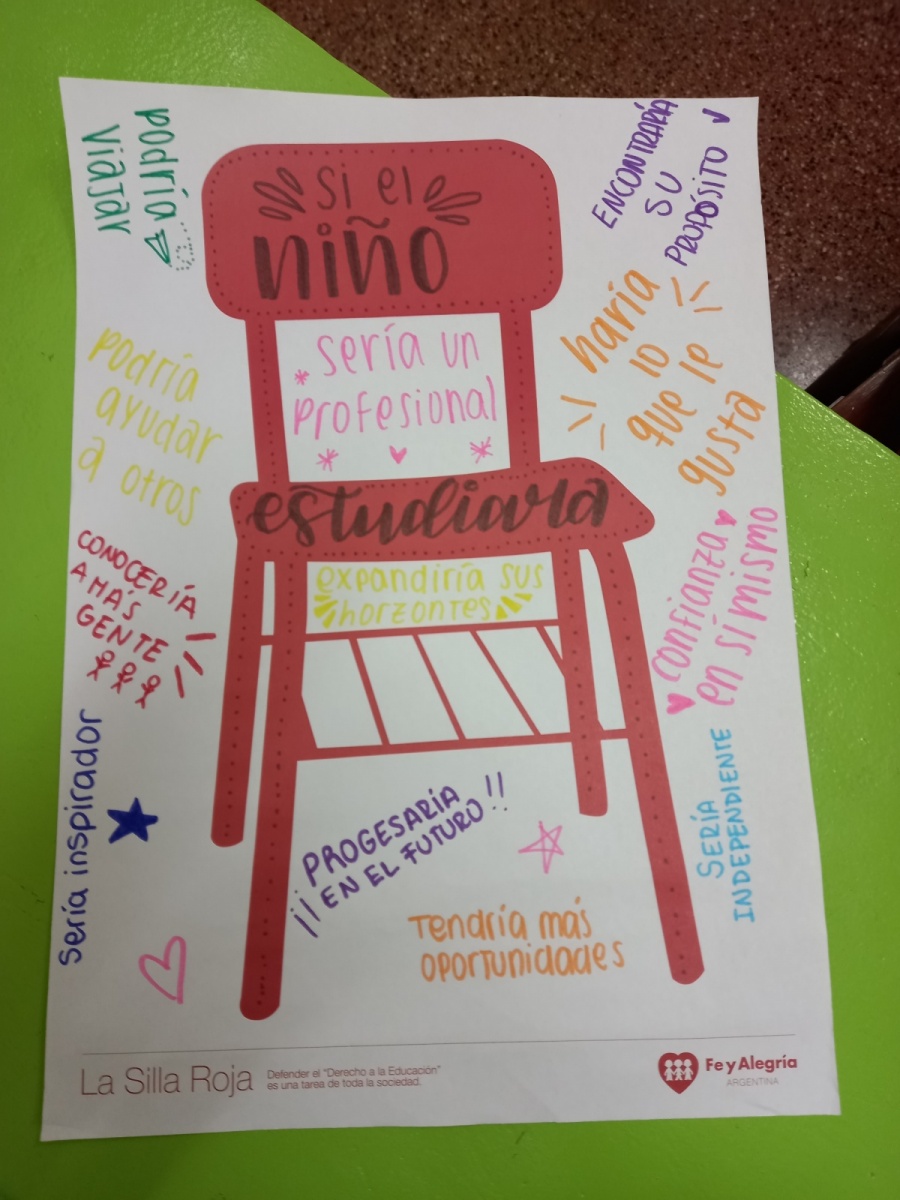 si el
niño
sería un
profesional
estudiara
expandiría sus
horzontes
podría
viajar
podría
ayudar
a otros
CONOCERÍA
A MÁS
GENTE
sería inspirador
ENCONTRARÍA
SU
PROPÓSITO
haría
lo
que le
gusta
confianza
en sí mismo
SERÍA
INDEPENDIENTE
¡¡PROGESARÍA
EN EL FUTURO!!
Tendría más
oportunidades
La Silla Roja
Defender el "Derecho a la Educación"
es una tarea de toda la sociedad.
Fe y Alegría
ARGENTINA